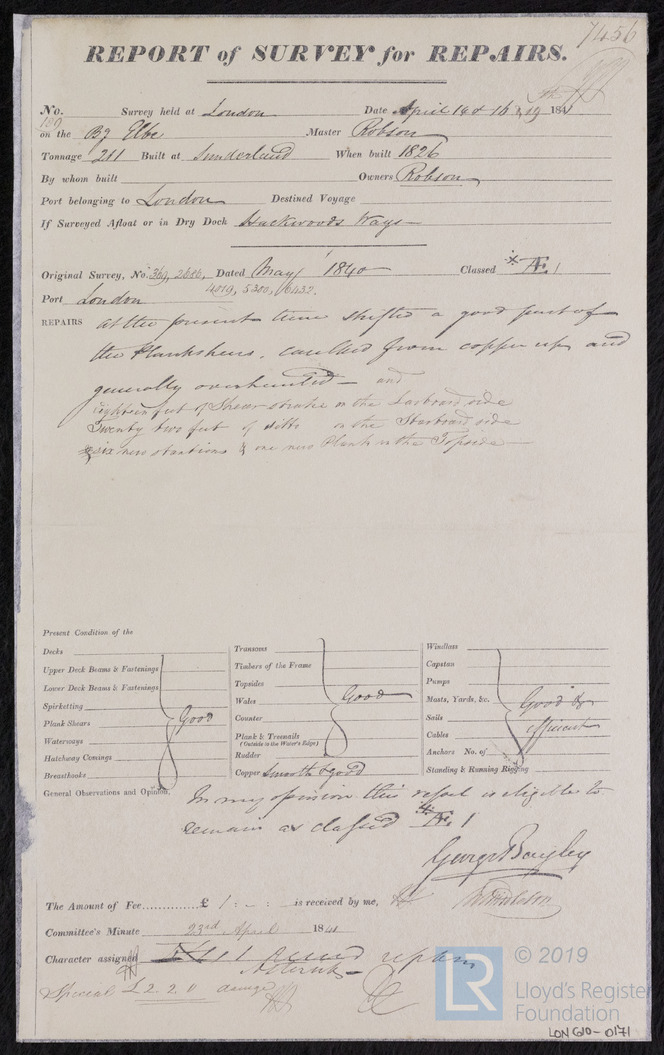 7456
REPORT of SURVEY for REPAIRS.
No. Survey held at London Date April 14 & 16 & 19 1841
on the Bg Elbe Master Robson
Tonnage 211 Built at Sunderland When built 1826
By whom built Owners Robson
Port belonging to London Destined Voyage
If Surveyed Afloat or in Dry Dock Hackwoods Ways
Original Survey, No. 369, 2686, Dated May 1840 Classed * Æ 1
4019, 5300, 6432.
Port London
REPAIRS at the present time shifted a good part of
the Plankshears, caulked from copper up and
generally overhauled - and
Eighteen feet of Shear strake on the Larboard side
Twenty two feet of ditto on the Starboard side
six new stantions & one new Plank in the Topside
Present Condition of the
Decks
Upper Deck Beams & Fastenings
Lower Deck Beams & Fastenings
Spirketting
Plank Shears Good
Waterways
Hatchway Comings
Breasthooks
Transoms
Timbers of the Frame
Topsides
Wales Good
Counter
Plank & Treenails
(Outside in the Water's Edge)
Rudder
Copper Smooth & good
Windlass
Capstan
Pumps
Masts, Yards, &c. Good &
Sails efficient
Cables
Anchors No. of
Standing & Running Rigging
General Observations and Opinion, In my opinion this vessel is eligible to
remain as classed * Æ 1
George Bayley
The Amount of Fee £ 1 : - : is received by me,
Committee's Minute 23rd April 1841
Character assigned
Special £ 2.2.0 damage
LR © 2019
Lloyd's Register
Foundation
LON 610-0171